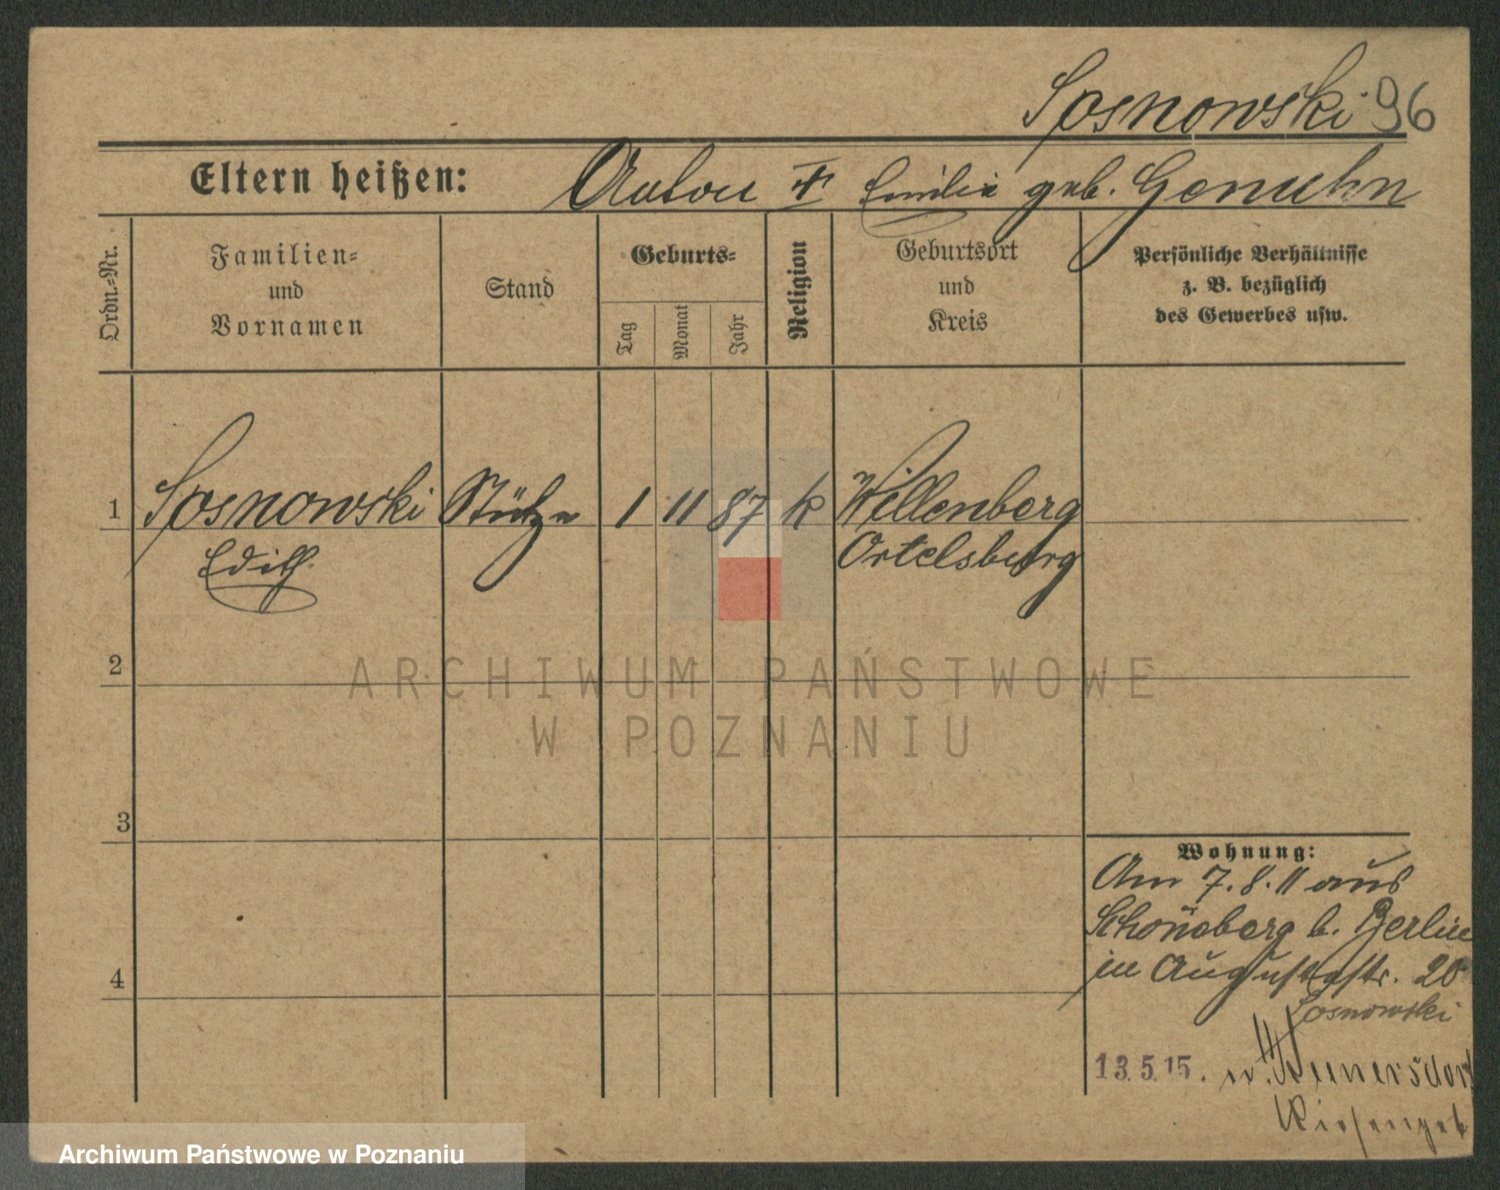 Sosnowski 96
Eltern heißen: Anton † Emilie geb. Genuhn
Ordn.-Nr.
Familien-
und
Vornamen
Stand
Geburts-
Tag
Monat
Jahr
Religion
Geburtsort
und
Kreis
Persönliche Verhältnisse
z. B. bezüglich
des Gewerbes usw.
1 Sosnowski Stütze 1 11 87 k Willenberg
Edith Ortelsburg
2
3
4
Wohnung:
Am 7.8.11 aus
Schöneberg b. Berlin
in Augustastr. 20
Sosnowski
13.5.15. n.
Riesengeb
ARCHIWUM PAŃSTWOWE
W POZNANIU
Archiwum Państwowe w Poznaniu